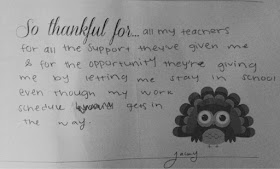 So thankful for... all my teachers
for all the support they've given me
& for the opportunity they're giving
me by letting me stay in school
even though my work
schedule gets in
the way.